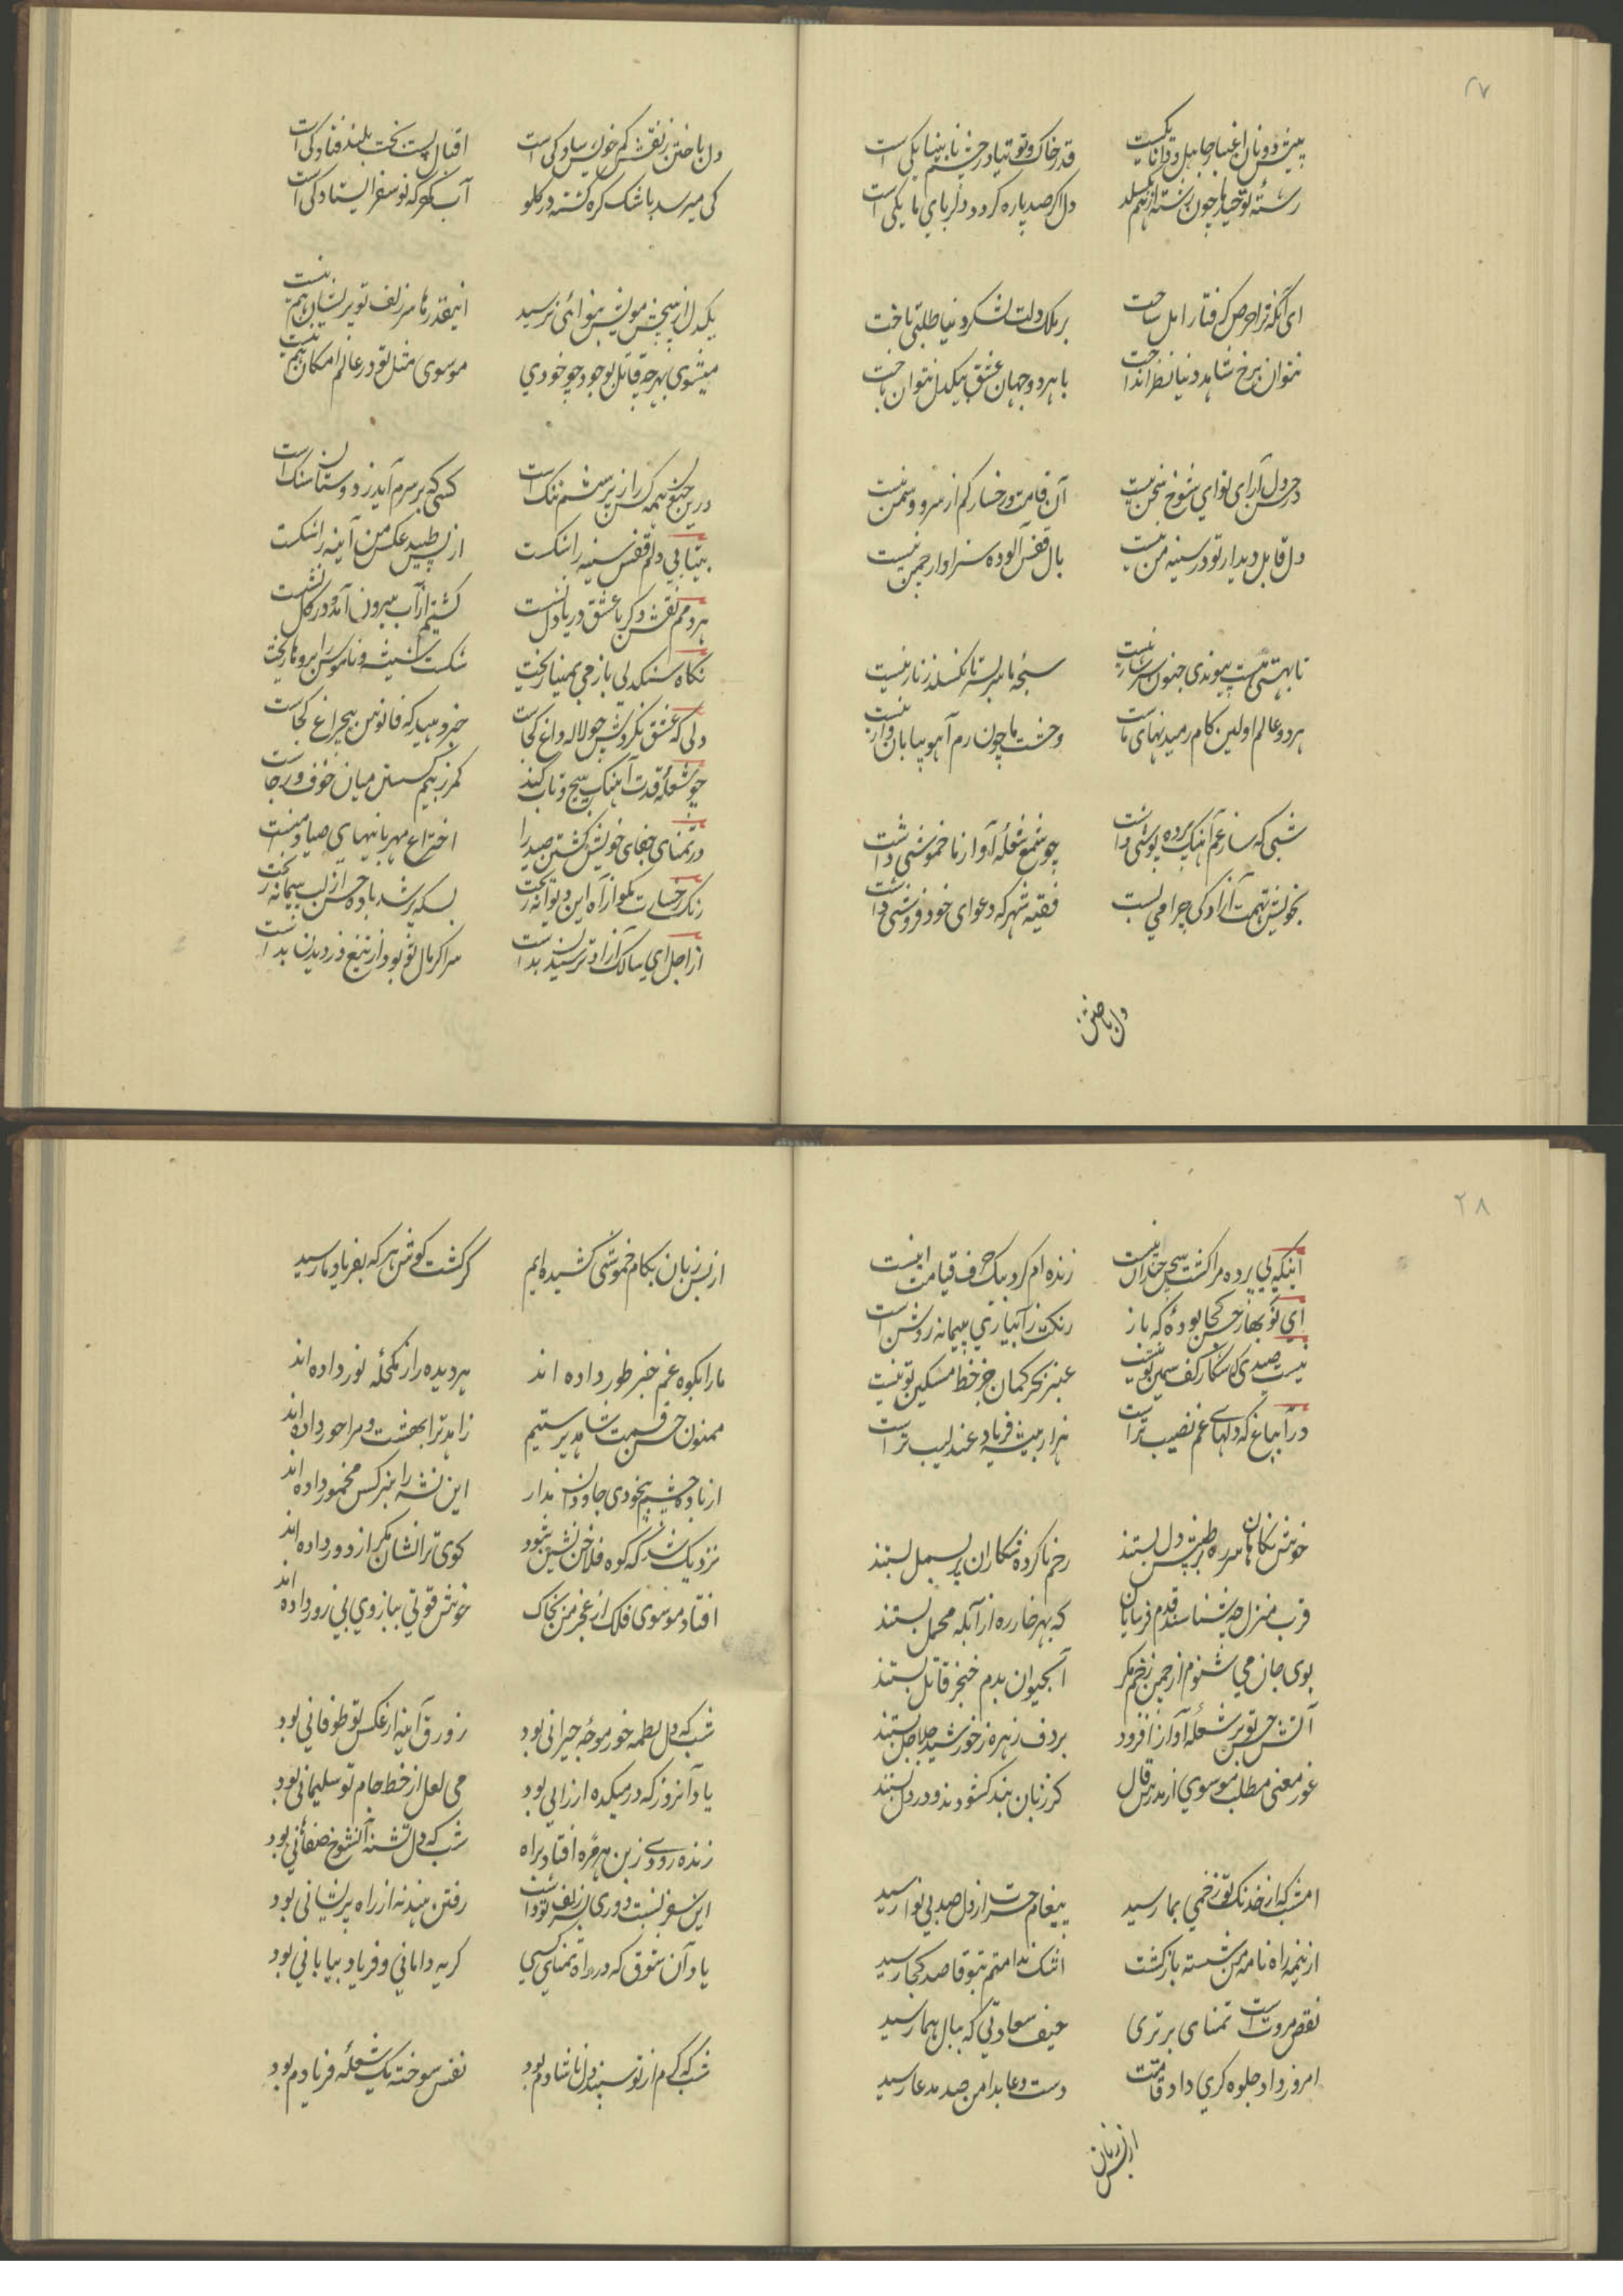 ۲۷
پیش دونان اعتبار جاهل و دانا یکیست
قدر خاک و توتیا در چشم نابینا یکی است
رشتهٔ توحید ما چون رشته از هم نگسلد
دل اگر صد پاره گردد دلربای ما یکی است
ای آنکه ترا حرص گرفتار امل ساخت
بر ملک دلت لشکر دنیا طلبی تاخت
نتوان برخ شاهد دنیا نظر انداخت
با هر دو جهان عشق بیکدل نتوان باخت
جز دل آرای نوای شوخ سخن نیست
آن قامت و رخسار کم از سرو و سمن نیست
دل قابل دیدار تو در سینه من نیست
بال قفس آلوده سزاوار چمن نیست
تا بهستی هست پیوندی جنون سرشار نیست
سبحهٔ ما بر نگسلد زنار نیست
هر دو عالم اولین کام رمیدنهای ماست
وحشت ما چون رم آهو بیابان وار نیست
شبی که ساز غم آهنگ پرده پوشی داشت
چو شمع شعلهٔ آواز ما خموشی داشت
بخویش تهمت آزادگی چرا می بست
فقیه شهر که دعوای خود فروشی داشت
دل باختن
دل باختن ز نقش کم خویش سادگی است
اقبال پست بخت بلند فتادگی است
کی میرسد باشک گره گشته در گلو
آب گهر که نوسفر ایستادگی است
یکدل از پیچش مویش بنوائی نرسید
اینقدرها سر زلف تو پریشان هم نیست
میشوی بهر چه قاتل بوجود چو خودی
موسوی مثل تو در عالم امکان هم نیست
درین جنون همه کس را ز پرسشم ننگ است
کسی که بر سرم آید ز دوستان سنگ است
بیتابی دلم قفس سینه را شکست
از بس طپید عکس من آینه را شکست
هر دمم نقش دگر با عشق دریا دل نشست
کشتیم از آب بیرون آمد و در گل نشست
نگاه سنگدلی باز می بمینا ریخت
شکست شیشه و ناموس آبروها ریخت
دلی که عشق نکردش چو لاله داغ کجاست
خبر دهید که فانوس بیچراغ کجاست
چو شعله قدت آهنگ پیچ و تاب کند
کمر ز بیم گسستن میان خوف و رجاست
در تمنای جفای خویش کشتن صید را
اختراع مهربانیهای صیاد منست
رنگ خسارت مگو از آه این دیوانه ریخت
بسکه پر شد باده حسن از لب پیمانه ریخت
از اجل ای سالک آزاد ترسیدن بد است
سر اگر مال تو بود از تیغ دزدیدن بد است
۲۸
اینکه بی پرده مرا کشت بسی چندان نیست
زنده ام کرد بیک حرف قیامت اینست
ای نوبهار حسن کجا بودهٔ که باز
رنگت ز آبیاری پیمانه روشن است
عنبر بحر کمان جز خط مشکین تو نیست
در آن باغ که دلهای غم نصیب تر است
هزار میشه فریاد عندلیب تر است
خوش نگاهان سر ره بر طپش دل بستند
زخم ناکرده شکاران پر بسمل بستند
قرب منزل چه شناسند قدم فرسایان
که بهر خار ره از آبله محمل بستند
بوی جان می شنوم از چمن زخم مگر
آبحیوان بدم خنجر قاتل بستند
آتش حسن تو بر شعلهٔ آواز افزود
بر دف زهره ز خورشید جلاجل بستند
غور معنی مطلب موسوی از مدرس قال
کز زبان بند گشودند و در دل بستند
امشب که از خدنگ تو زخمی بما رسید
پیغام حسرت از دل صد بی نوا رسید
از نیمه راه نامه من شسته بازگشت
اشک ندامتم بتو قاصد کجا رسید
نقص مروت است تمنای برتری
حیف سعادتی که ببال هما رسید
امروز داد جلوه گری داد قامتت
دست دعا بدامن صد مدعا رسید
از بس زبان
از بس زبان بکام خموشی کشیده ایم
کر گشت گوش هر که بفریاد ما رسید
ما را بکوه غم خبر طور داده اند
هر دیده را ز مکحله نور داده اند
ممنون حسن قسمت شاهد پرستیم
زاهد ترا بهشت و مرا حور داده اند
از باده چشم بیخودی جاودان مدار
این نشه را بنرگس مخمور داده اند
نزدیک شد که کوه فلاخن نشین شود
کوی ترا نشان مگر از دور داده اند
افتاد موسوی فلک از عجز من بخاک
خوش قوتی ببازوی بی زور داده اند
شب که دل لطمه خور موجهٔ حیرانی بود
زورق آینه از عکس تو طوفانی بود
یاد آنروز که در میکده ارزانی بود
می لعل از خط جام تو سلیمانی بود
زنده رودی ز بن هر مژه افتاد براه
شب که دل تشنه آن شوخ صفاهانی بود
این سفر نسبت دوری بسر زلف تو داشت
رفتن هند نه از راه پریشانی بود
یاد آن شوق که در راه تمنای کسی
گریه دامانی و فریاد بیابانی بود
شب که گرم از تو سپند دل ناشادم بود
نفس سوخته یک شعله فریادم بود